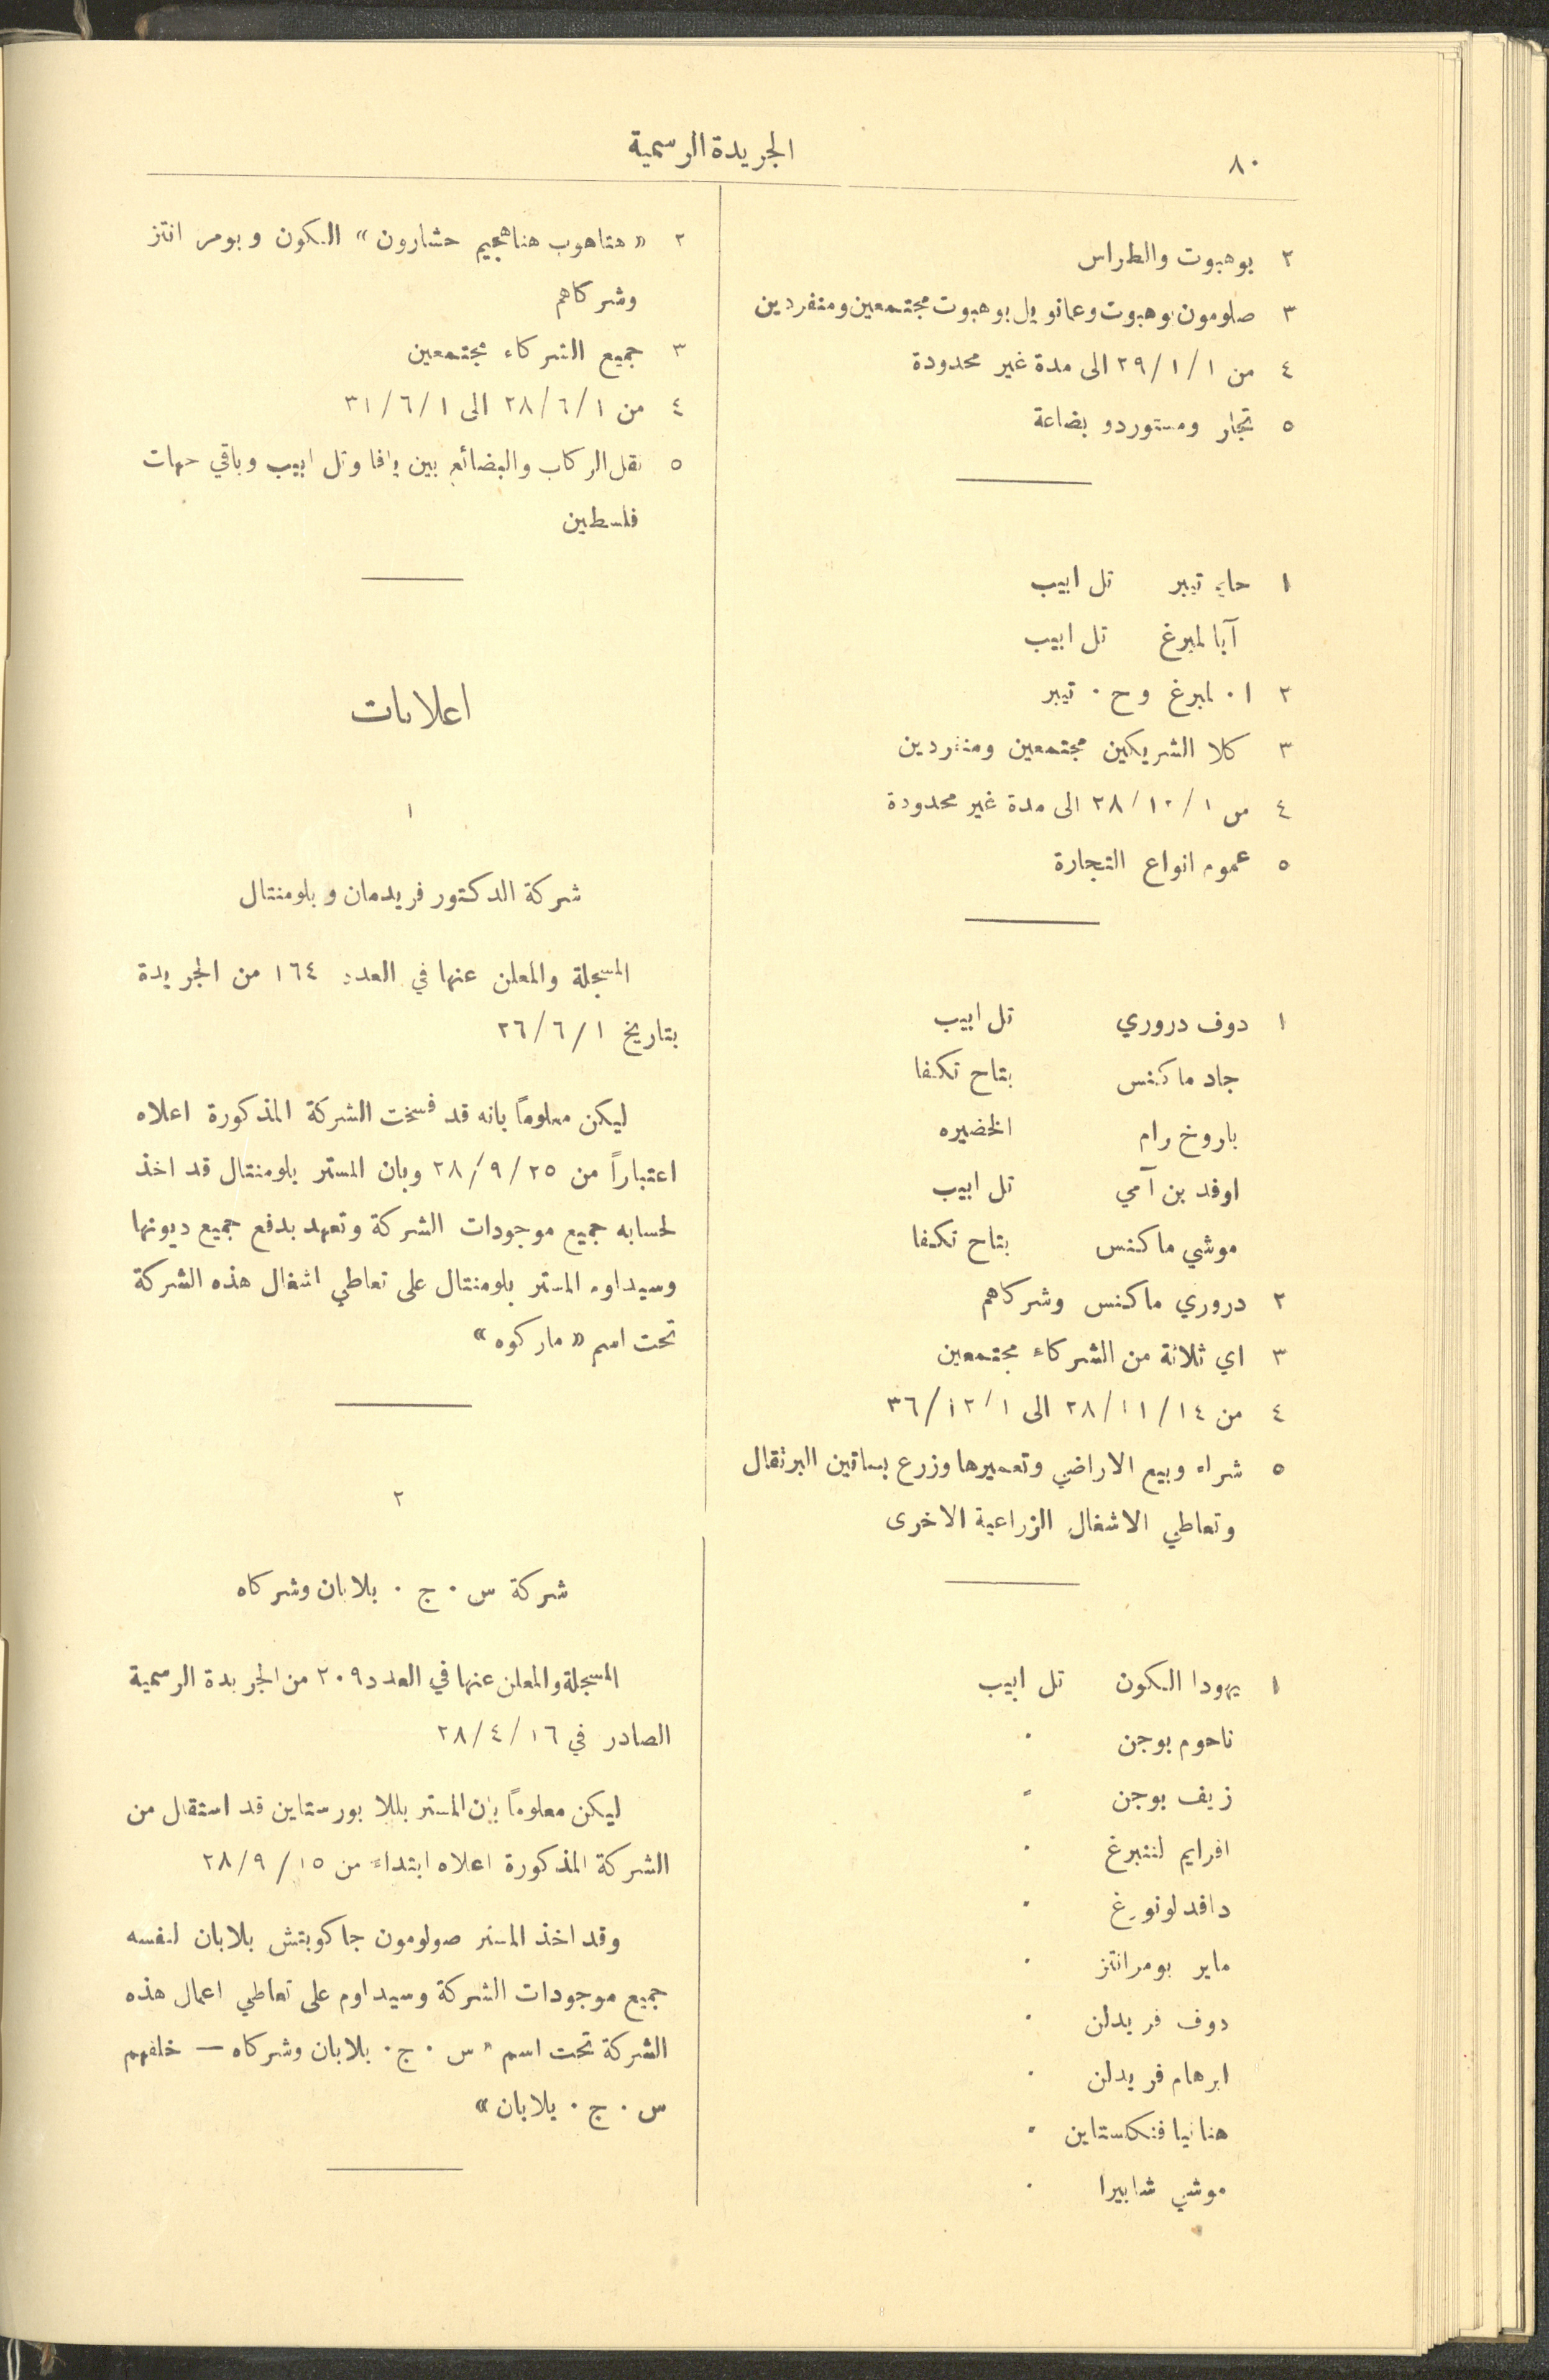 ٨٠
الجريدة الرسمية
٢ بوهبوت والطراس
٣ صلومون بوهبوت وعمانويل بوهبوت مجتمعين ومنفردين
٤ من ١/١/٢٩ الى مدة غير محدودة
٥ تجار ومستوردو بضاعة
١ حايم تيبر تل ابيب
آبا لمبرغ تل ابيب
٢ ا. لمبرغ و ح. تيبر
٣ كلا الشريكين مجتمعين ومنفردين
٤ من ١/١٢/٢٨ الى مدة غير محدودة
٥ عموم انواع التجارة
١ دوف دروري تل ابيب
جاد ماكنس بتاح تكفا
باروخ رام الخضيره
اوفد بن آمي تل ابيب
موشي ماكنس بتاح تكفا
٢ دروري ماكنس وشركاهم
٣ اي ثلاثة من الشركاء مجتمعين
٤ من ١٤/١١/٢٨ الى ١/١٢/٣٦
٥ شراء وبيع الاراضي وتعميرها وزرع بساتين البرتقال
وتعاطي الاشغال الزراعية الاخرى
١ يهودا الكون تل ابيب
ناحوم بوجن "
زيف بوجن "
افرايم لنتبرغ "
دافد لونورغ "
ماير بومرانتز "
دوف فريدلن "
ابرهام فريدلن "
هنانيا فنكلستاين "
موشي شابيرا "
٢ «هتاهوب هناهجيم حشارون» الكون وبومر انتز
وشركاهم
٣ جميع الشركاء مجتمعين
٤ من ١/٦/٢٨ الى ١/٦/٣١
٥ نقل الركاب والبضائع بين يافا وتل ابيب وباقي جهات
فلسطين
اعلانات
١
شركة الدكتور فريدمان وبلومنتال
المسجلة والمعلن عنها في العدد ١٦٤ من الجريدة
بتاريخ ١/٦/٢٦
ليكن معلوماً بانه قد فسخت الشركة المذكورة اعلاه
اعتباراً من ٢٥/٩/٢٨ وبان المستر بلومنتال قد اخذ
لحسابه جميع موجودات الشركة وتعهد بدفع جميع ديونها
وسيداوم المستر بلومنتال على تعاطي اشغال هذه الشركة
تحت اسم «ماركوه»
٢
شركة س. ج. بلابان وشركاه
المسجلة والمعلن عنها في العدد ٢٠٩ من الجريدة الرسمية
الصادر في ١٦/٤/٢٨
ليكن معلوماً بان المستر بللا بورستاين قد استقال من
الشركة المذكورة اعلاه ابتداء من ١٥/٩/٢٨
وقد اخذ المستر صولومون جاكوبتش بلابان لنفسه
جميع موجودات الشركة وسيداوم على تعاطي اعمال هذه
الشركة تحت اسم "س. ج. بلابان وشركاه — خلفهم
س. ج. بلابان»